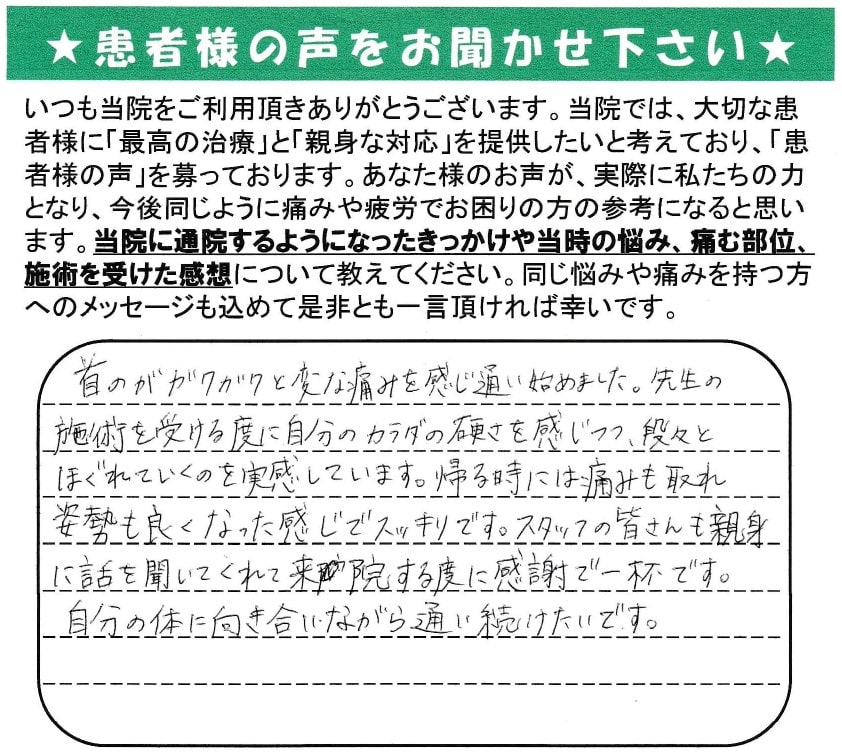 ★患者様の声をお聞かせ下さい★
いつも当院をご利用頂きありがとうございます。当院では、大切な患
者様に「最高の治療」と「親身な対応」を提供したいと考えており、「患
者様の声」を募っております。あなた様のお声が、実際に私たちの力
となり、今後同じように痛みや疲労でお困りの方の参考になると思い
ます。当院に通院するようになったきっかけや当時の悩み、痛む部位、
施術を受けた感想について教えてください。同じ悩みや痛みを持つ方
へのメッセージも込めて是非とも一言頂ければ幸いです。
首のがガクガクと変な痛みを感じ通い始めました。先生の
施術を受ける度に自分のカラダの硬さを感じつつ、段々と
ほぐれていくのを実感しています。帰る時には痛みも取れ
姿勢も良くなった感じでスッキリです。スタッフの皆さんも親身
に話を聞いてくれて来院する度に感謝で一杯です。
自分の体に向き合いながら通い続けたいです。